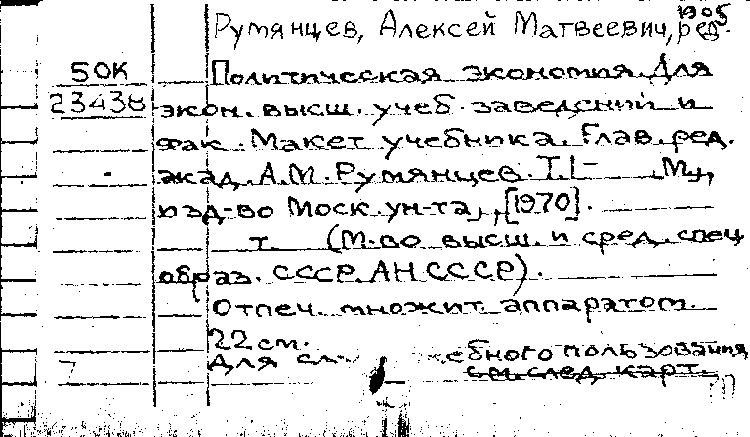 1905
Румянцев, Алексей Матвеевич, ред.
50К Политическая экономия. Для
23438 экон. высш. учеб. заведений и
фак. Макет учебника. Глав. ред.
акад. А.М. Румянцев. Т.1- М.,
изд-во Моск. ун-та, [1970].
т. (М-во высш. и сред. спец
образ. СССР. АН СССР).
Отпеч. множит. аппаратом.
22 см.
7 Для ебного пользования
см. след. карт.